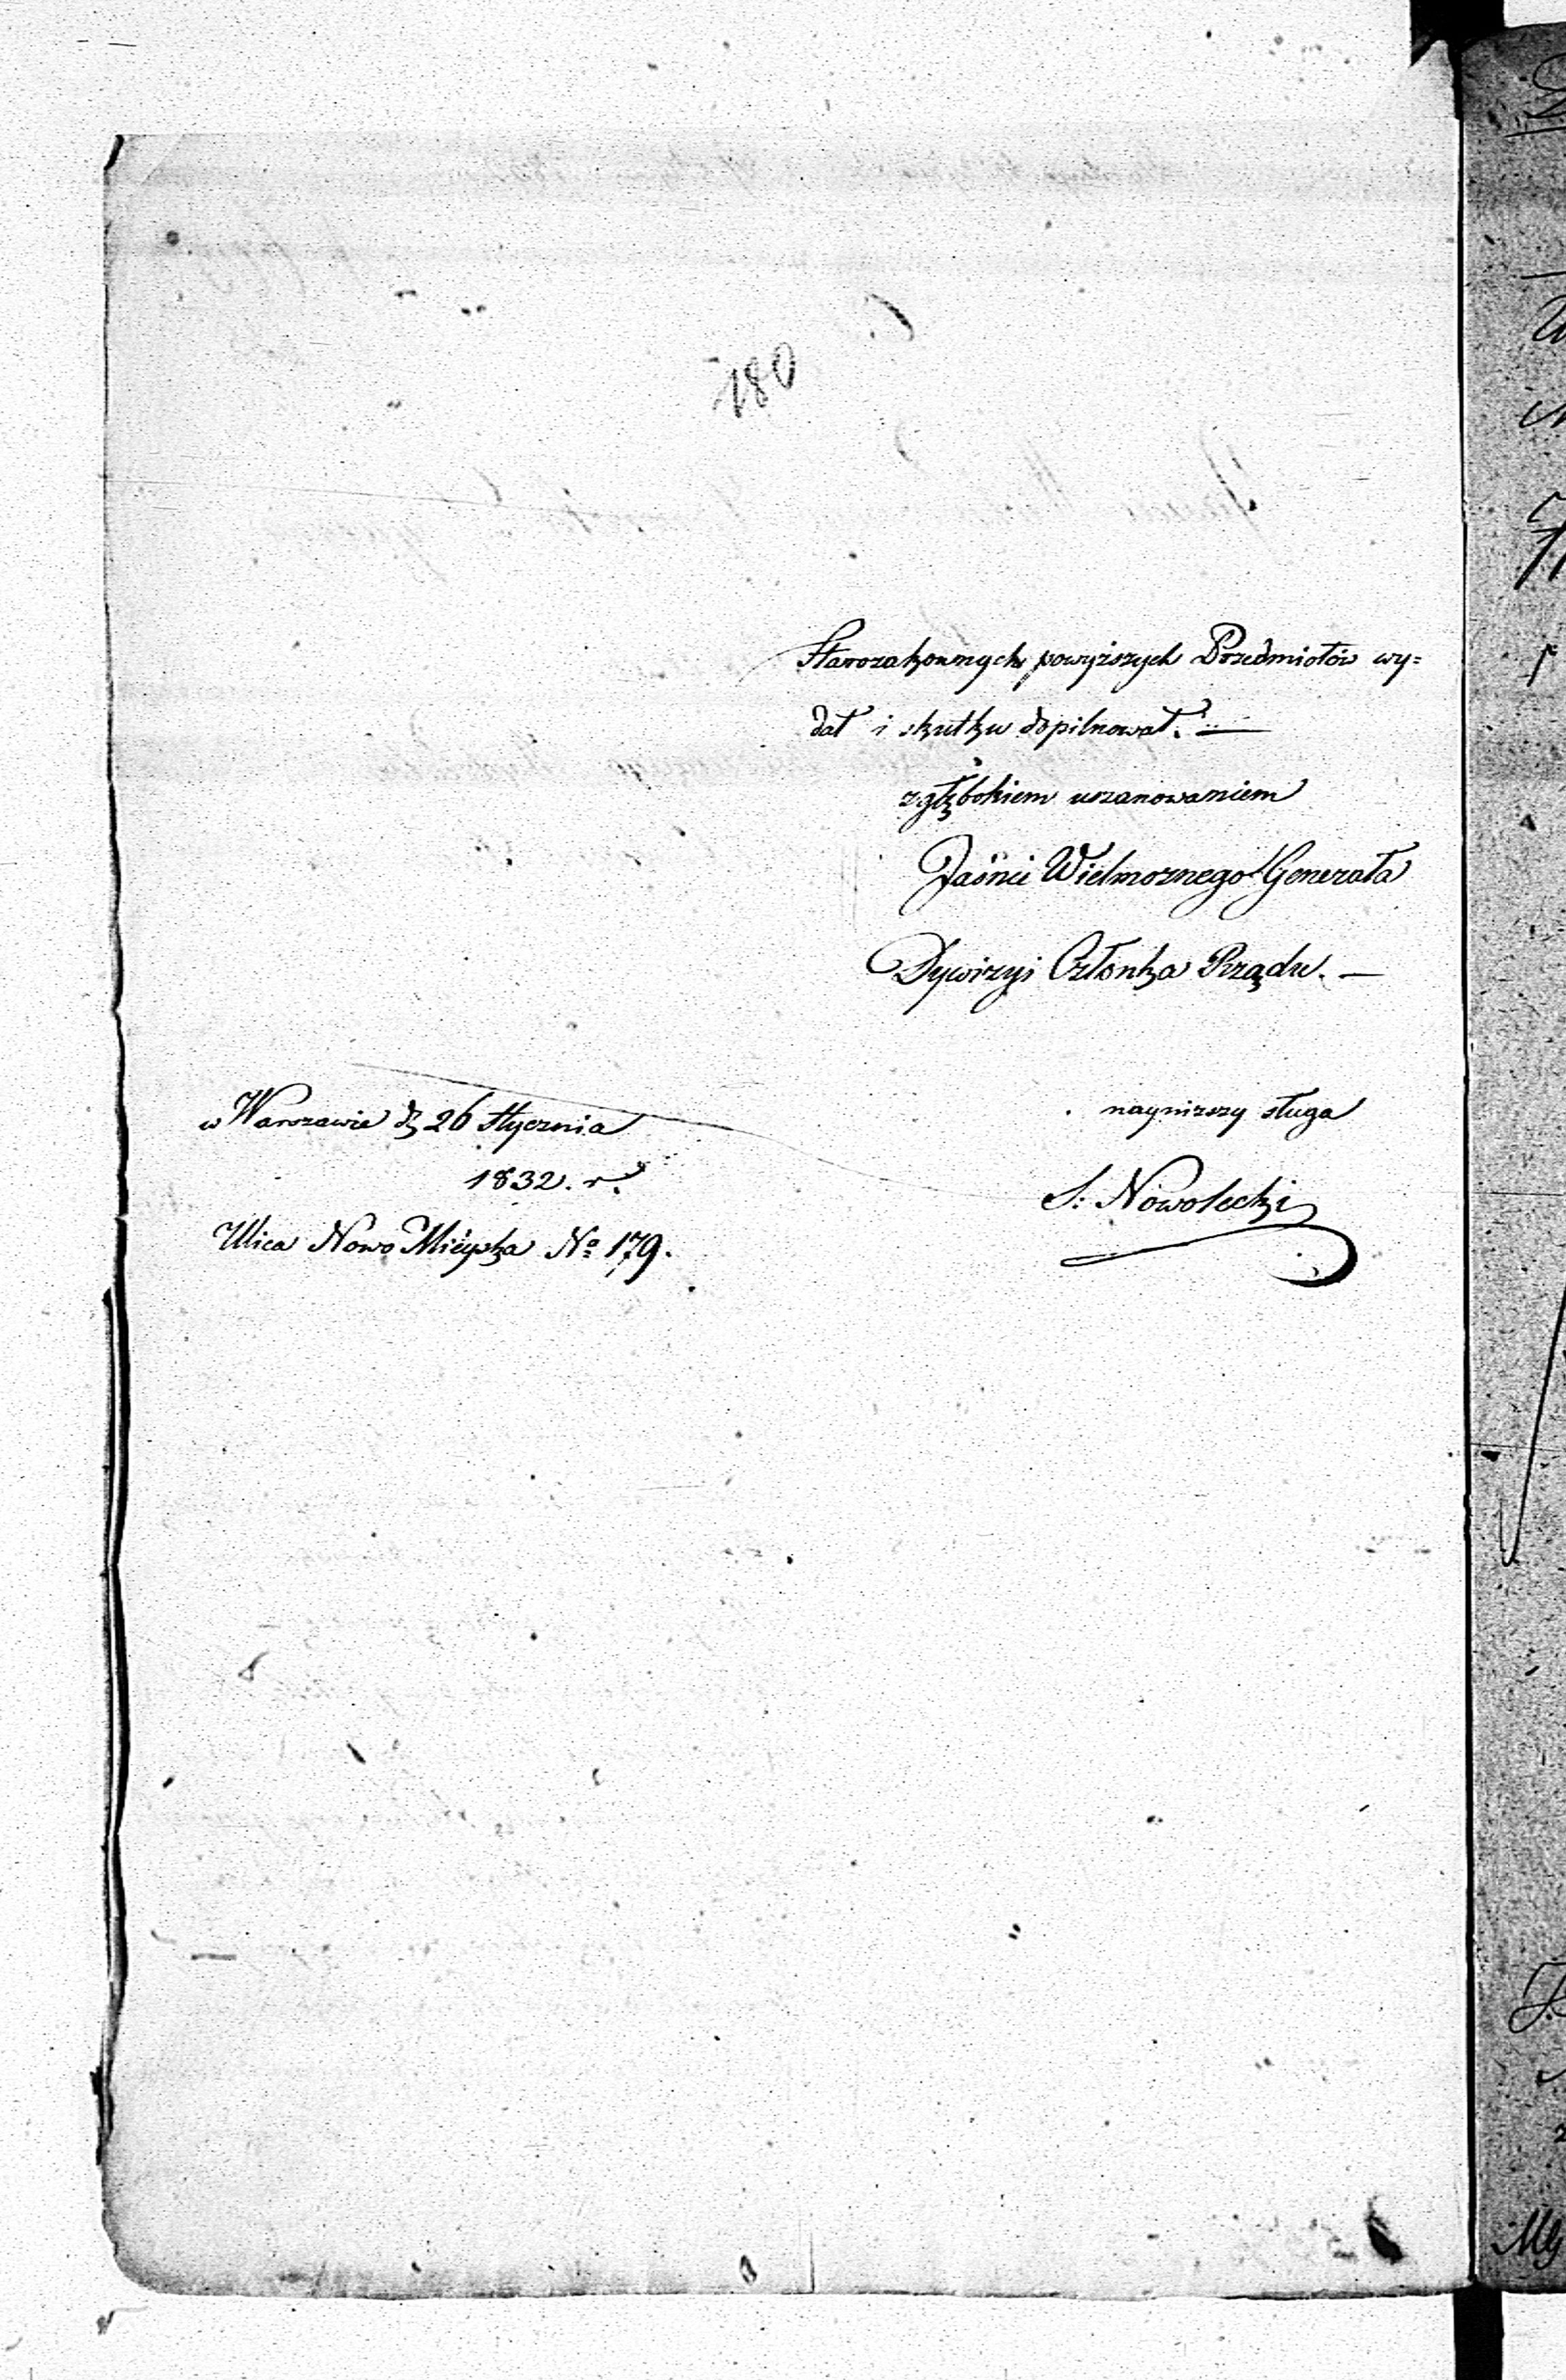 180
Starozakonnych powyższych Przedmiotów wy=
dał i skutku dopilnował. —
z głębokiem uszanowaniem
Jaśnie Wielmożnego Generała
Dywizyi Członka Rządu. —
w Warszawie d. 26 Stycznia
1832. r.
Ulica Nowo Mieyska No 179.
nayniższy sługa
S: Nowolecki